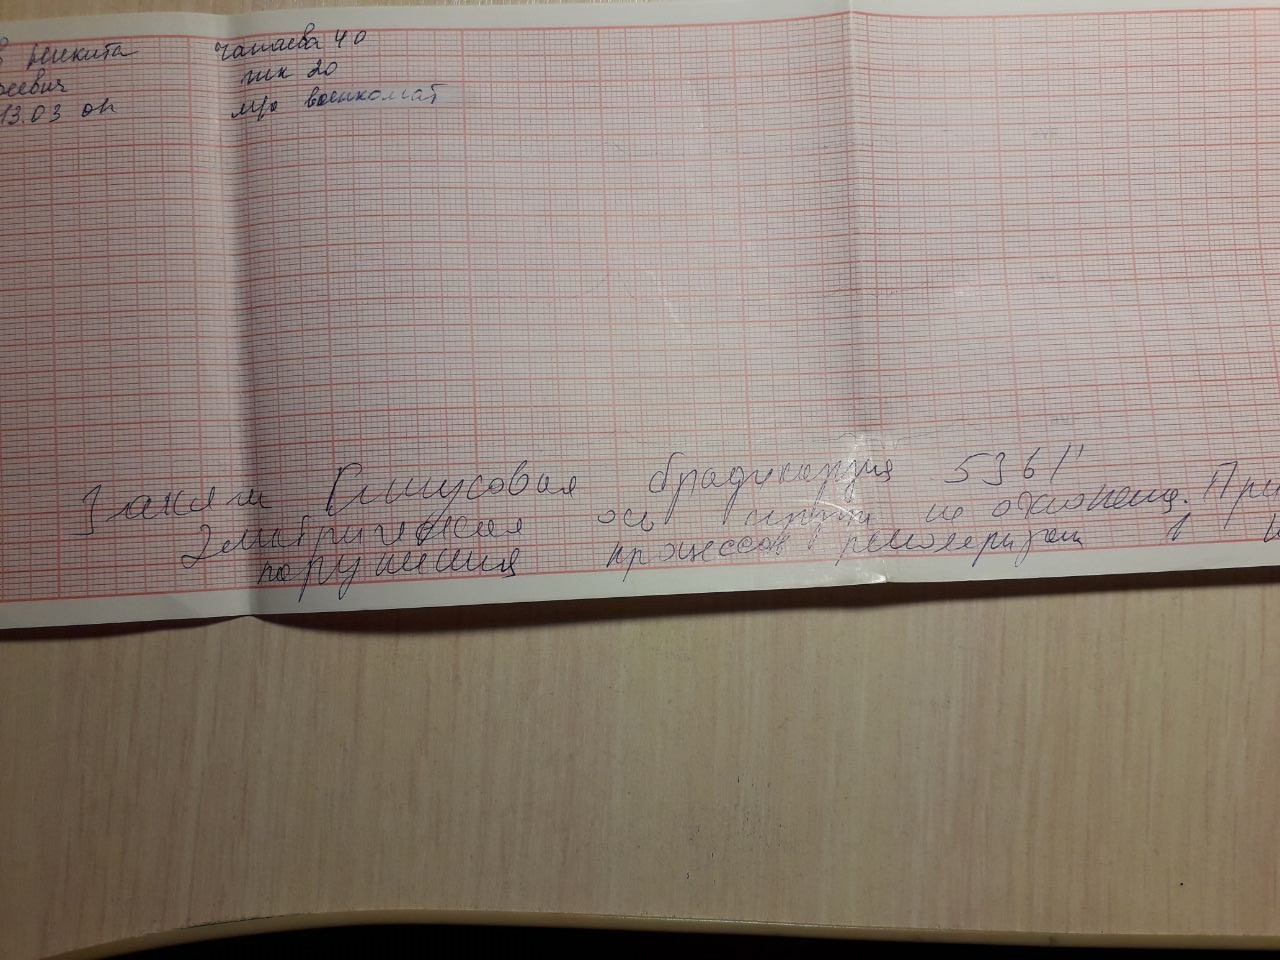 в Никита
еевич
13.03 оп
Чапаева 40
тк 20
м/о военкомат
Заключ Синусовая брадикардия 53 б/'
Электрическая ось не отклонена. При
нарушения процессов реполяризации в